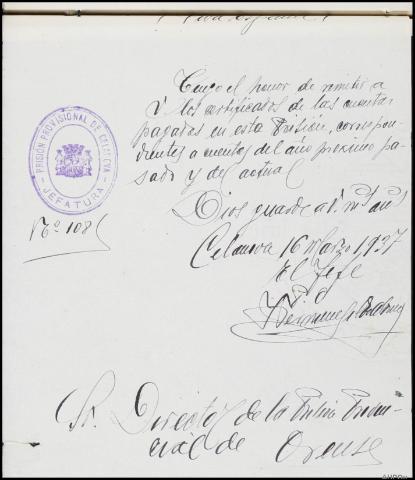 Tengo el honor de remitir a
V los certificados de las cuentas
pagadas en esta Prisión, correspon-
dientes a cuentas del año próximo pa-
sado y del actual
Dios guarde a V. ms as
PRISIÓN PROVISIONAL DE CELANOVA
JEFATURA
Nº 108
Celanova 16 Marzo 1937
El Jefe
Sr. Director de la Prisión Provin-
cial de Orense